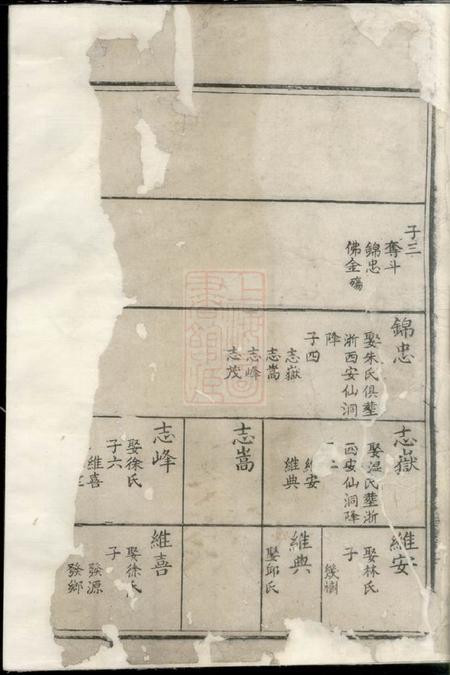 子三
奪斗
錦忠
佛金殤
錦忠
娶朱氏俱塟
浙西安仙洞
降
子四
志嶽
志嵩
志峰
志茂
志嶽
娶温氏塟浙
西安仙洞降
子二
維安
維典
志嵩
志峰
娶徐氏
子六
維喜
維安
娶林氏
子
幾樹
維典
娶邱氏
維喜
娶徐氏
子
發源
發鄉
上海圖
書館藏